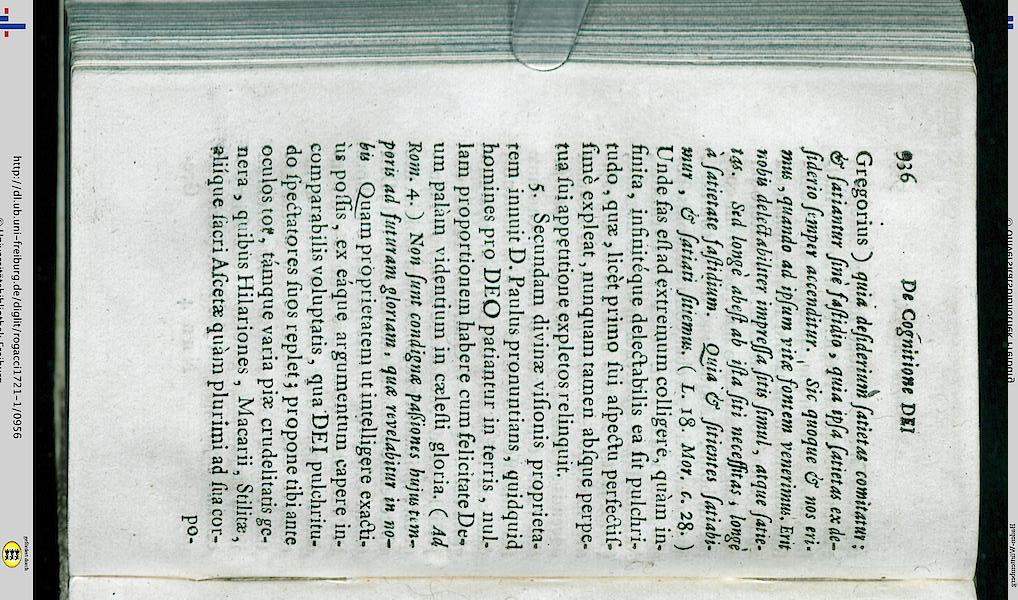 936 De Cognitione DEI
Gregorius ) quia desiderium ſatietas comitatur:
& ſatiantur ſinè faſtidio, quia ipſa ſatietas ex de-
ſiderio ſemper accenditur. Sic quoque & nos eri-
mus, quando ad ipſum vitæ fontem venerimus. Erit
nobis delectabiliter impreſſa ſitis ſimul, atque ſatie-
tas. Sed longè abeſt ab iſta ſiti neceſſitas, longè
à ſatietate faſtidium. Quia & ſitientes ſatiabi-
mur, & ſatiati ſitiemus. ( L. 18. Mor. c. 28. )
Unde fas eſt ad extremum colligere, quàm in-
finita, infinitéque delectabilis ea ſit pulchri-
tudo, quæ, licèt primo ſui aſpectu perfectiſ-
ſimè expleat, nunquam tamen abſque perpe-
tua ſui appetitione expletos relinquit.
5. Secundam divinæ viſionis proprieta-
tem innuit D. Paulus pronuntians, quidquid
homines pro DEO patiantur in terris, nul-
lam proportionem habere cum felicitate De-
um palam videntium in cæleſti gloria. ( Ad
Rom. 4. ) Non ſunt condignæ paſsiones hujus tem-
poris ad futuram gloriam, quæ revelabitur in no-
bis Quam proprietatem ut intelligere exacti-
ùs poſſis, ex eaque argumentum capere in-
comparabilis voluptatis, qua DEI pulchritu-
do ſpectatores ſuos replet; propone tibi ante
oculos tot, tamque varia piæ crudelitatis ge-
nera, quibus Hilariones, Macarii, Stilitæ,
aliíque ſacri Aſcetæ quàm plurimi ad ſua cor-
po-
http://dl.ub.uni-freiburg.de/diglit/rogacci1721-1/0956
© Universitätsbibliothek Freiburg
gefördert durch